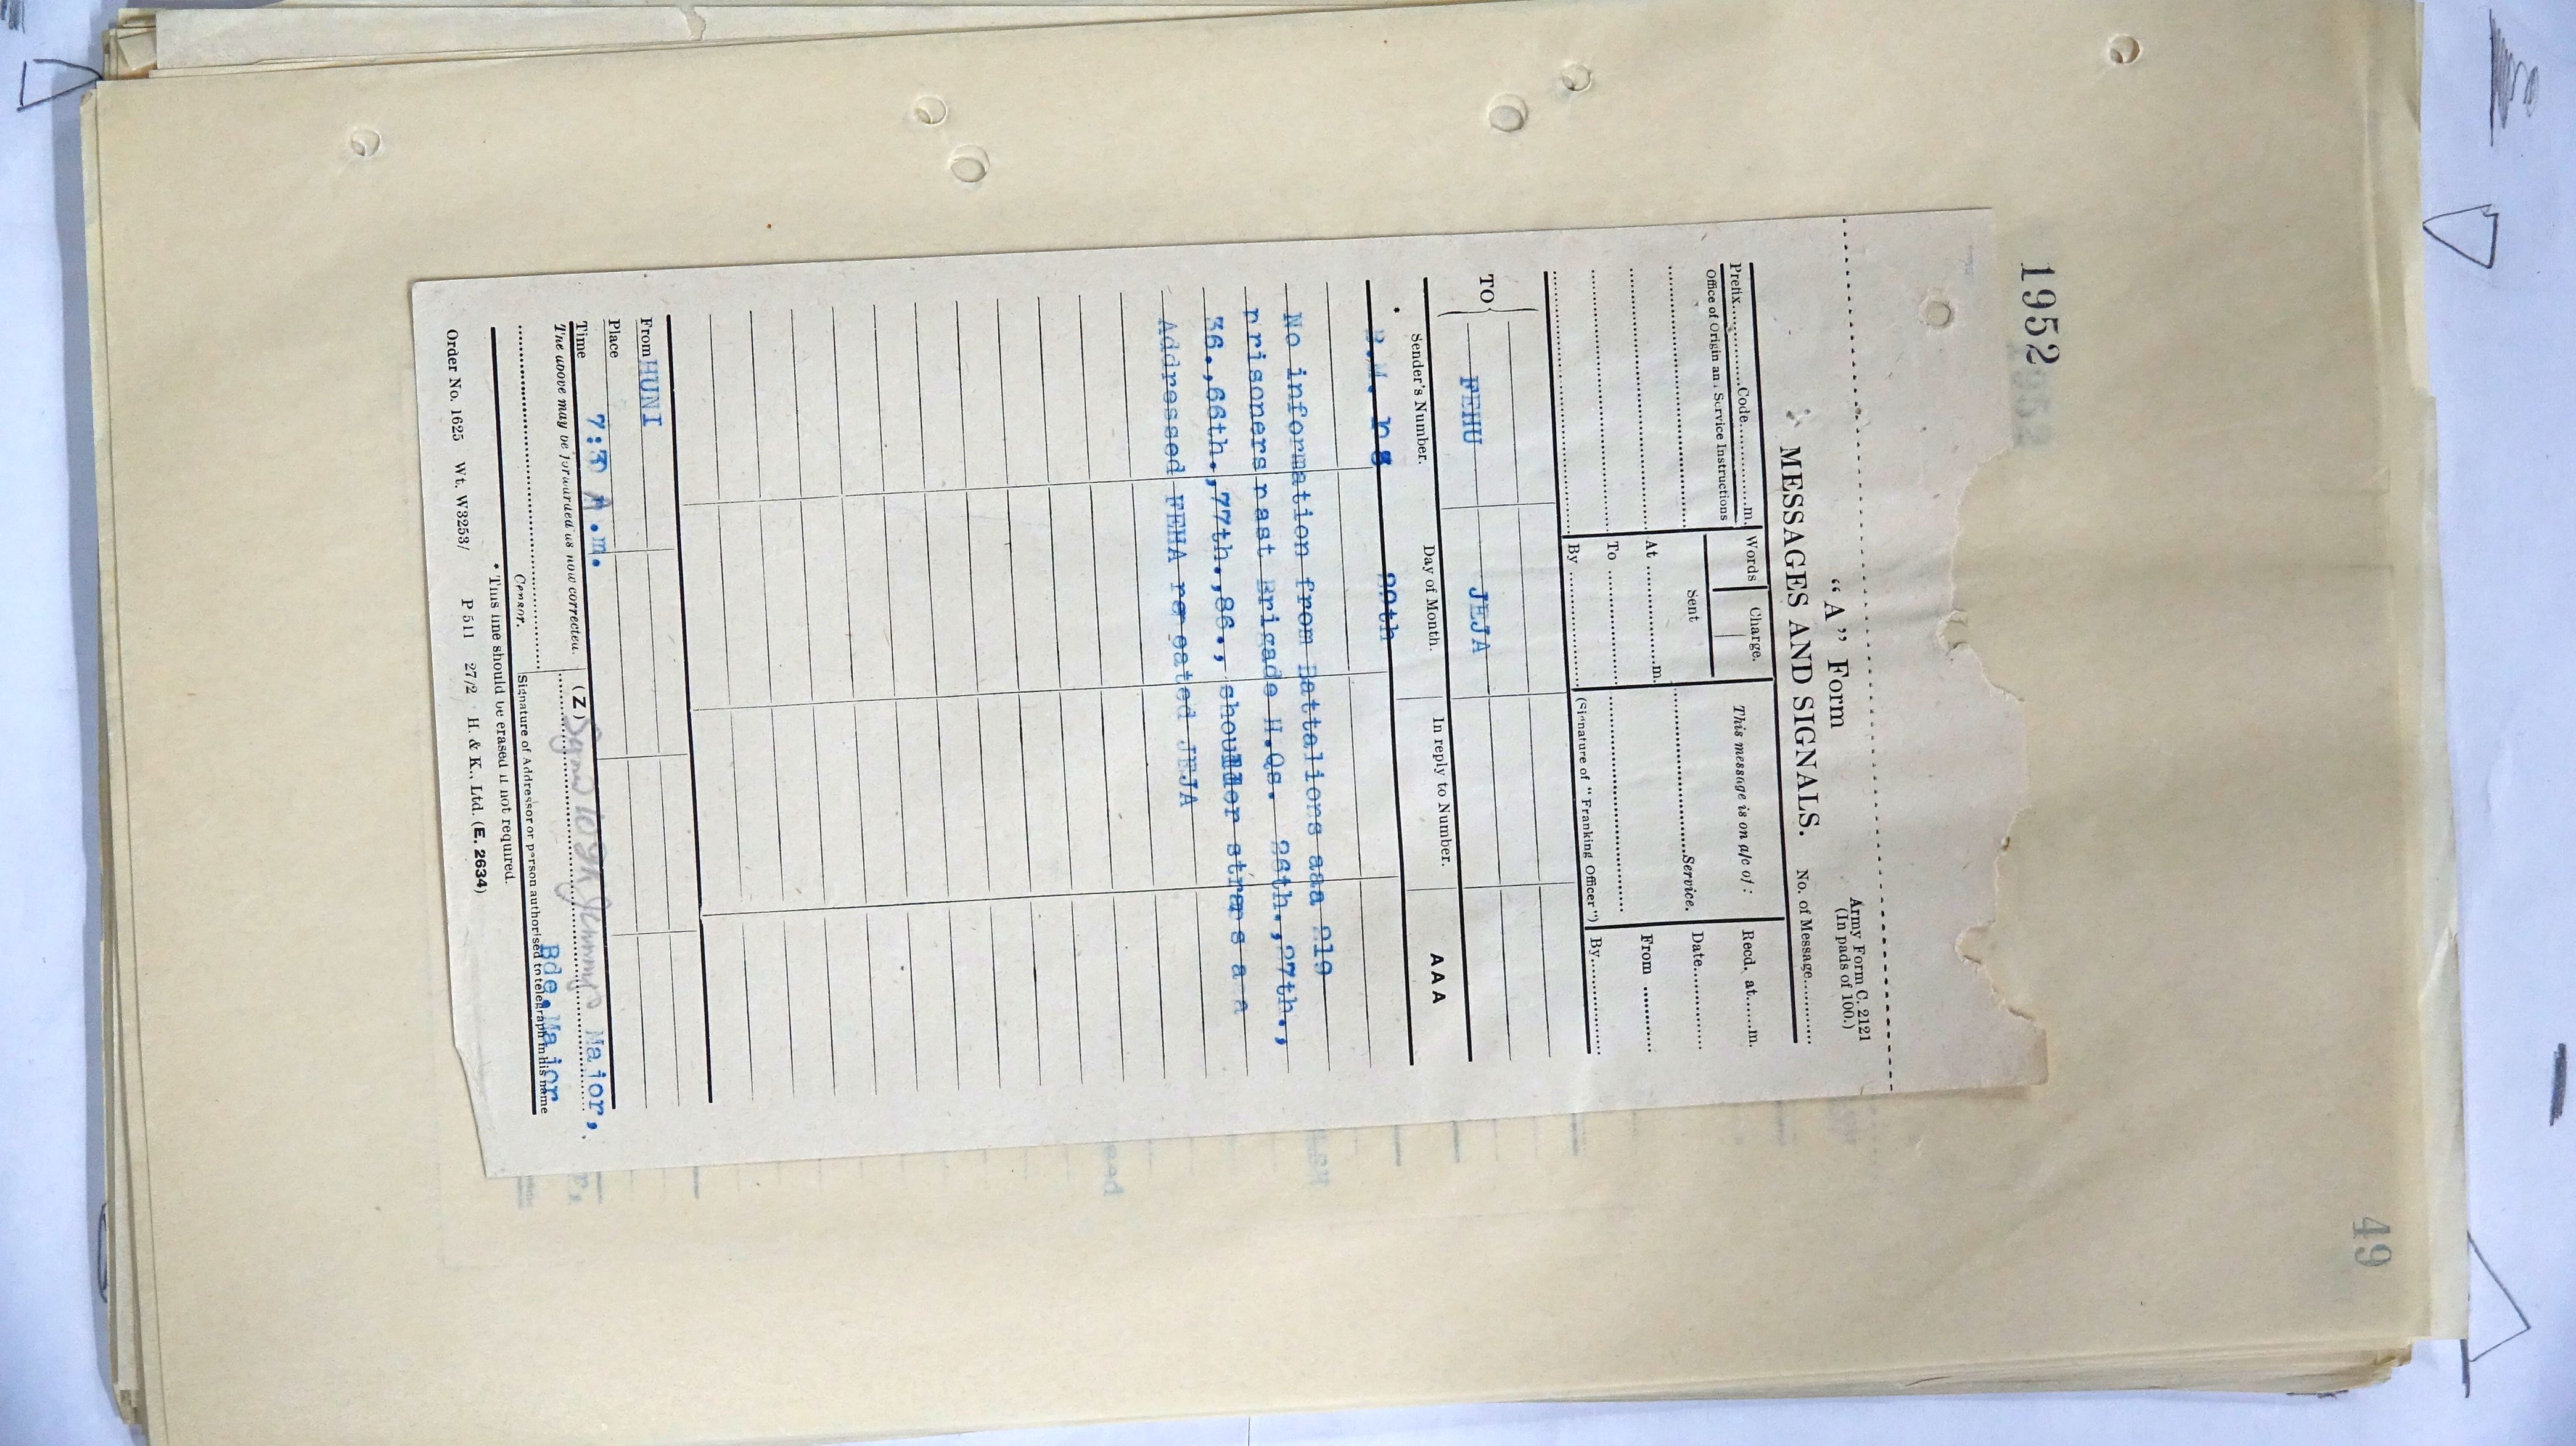 1952
49
"A" Form
MESSAGES AND SIGNALS.
Army Form C. 2121
(In pads of 100.)
No. of Message............
Prefix............Code............m.
Office of Origin and Service Instructions
Words
Charge.
Sent
At ............m.
To ............
By ............
This message is on a/c of :
............Service.
(Signature of "Franking Officer")
Recd. at......m.
Date............
From ............
By............
TO
FEHU
JEJA
Sender's Number.
Day of Month.
In reply to Number.
AAA
B.M.
20th
No information from Battalions aaa 219
prisoners past Brigade H.Qs. 26th.,27th.,
36.,66th.,77th.,86., shoulder straps a a
Addressed FEHA repeated JEJA
From HUNI
Place
Time 7:3 A.m.
The above may be forwarded as now corrected.
(Z)
Major,
Bde.Major
Censor.
Signature of Addressor or person authorised to telegraph in his name
* This line should be erased if not required.
Order No. 1625 Wt. W3253/ P 511 27/2 H. & K., Ltd. (E. 2634)